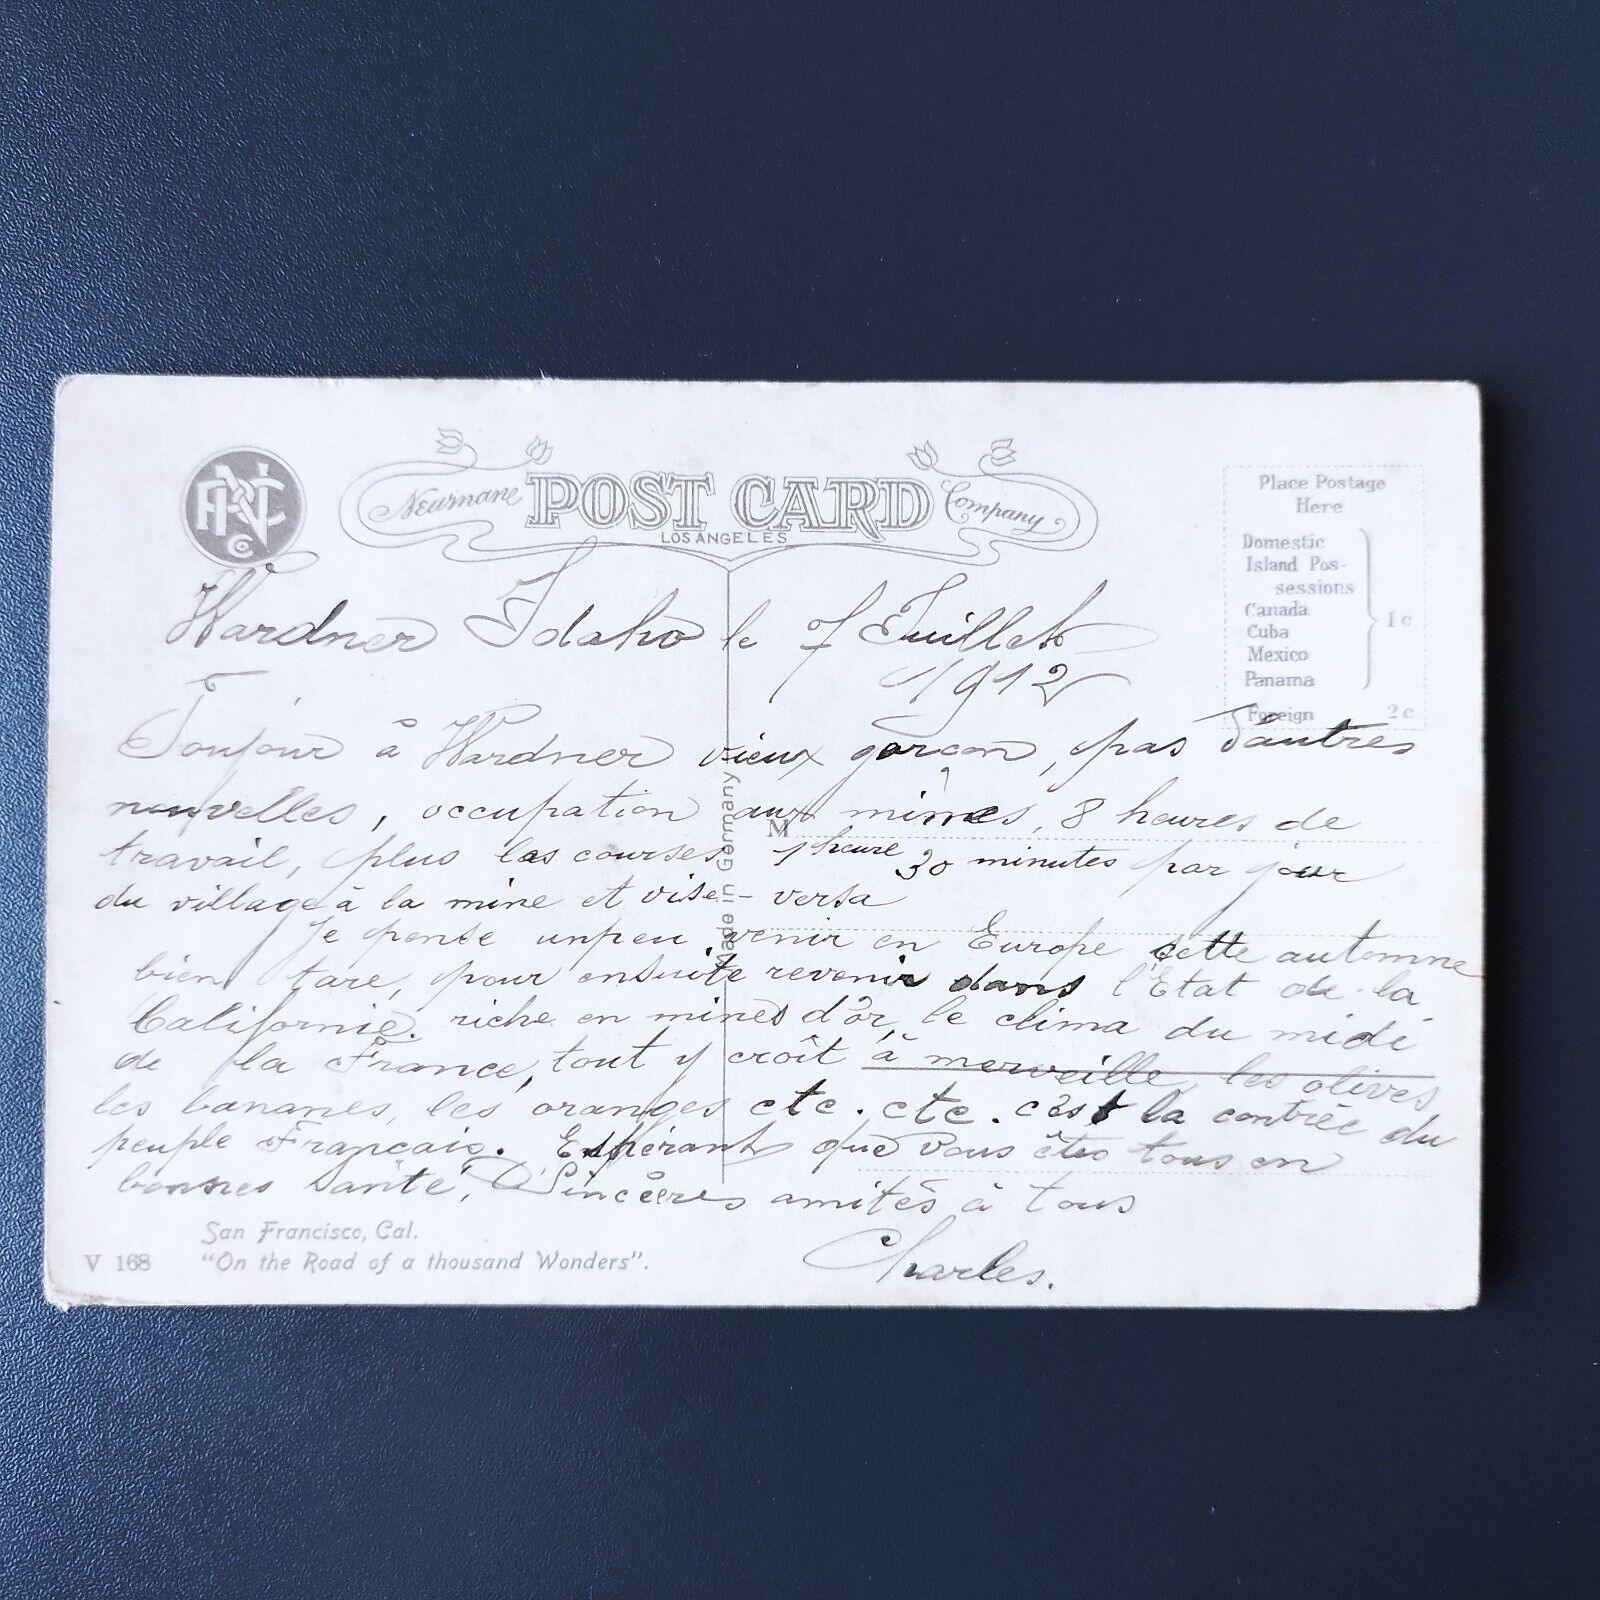 Newmane POST CARD Company
LOS ANGELES
Place Postage
Here
Domestic
Island Pos-
sessions
Canada
Cuba
Mexico
Panama
1c
Foreign 2c
Wardner Idaho le 7 Juillet
1912
Toujour à Wardner vieux garcon, pas d'autres
nouvelles, occupation aux mines, 8 heures de
travail, plus les courses 1 heure 30 minutes par jour
du village à la mine et vise-versa
Je pense unpeu venir en Europe cette automne
bien tare, pour ensuite revenir dans l'Etat de la
Californie. riche en mines d'or, le clima du midi
de la France, tout y croît à merveille, les olives
les bananes, les oranges etc. etc. c'est la contrée du
peuple Français. Espérant que vous êtes tous en
bonnes santé, Sincères amités à tous
Charles.
M
Made in Germany
San Francisco, Cal.
V 168 "On the Road of a thousand Wonders".